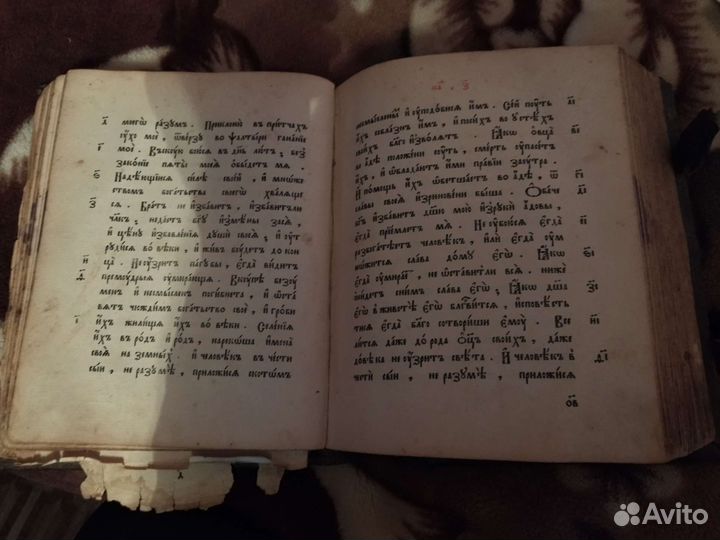 моегѡ разꙋмъ . Приклоню въ притчахъ
ꙋхо мое , ѿверзꙋ во ѱалтыри гаданїе
мое . Вскꙋю боюся въ день лютъ ; без
законїе пяты моея обыдетъ мя .
Надѣющїися силѣ своей , и мнѡже
ствомъ богатьства своегѡ хваляще
ся . Братъ не избавитъ , избавитъли
чл҃къ ; недастъ бг҃ꙋ измѣны зася ,
и цѣнꙋ избавленїя дꙋшы своея ; и ꙋт
рꙋдися во вѣки , и живъ бꙋдетъ до кон
ца . Не ꙋзритъ пагꙋбы , егда видитъ
премꙋдрыя ꙋмирающа . Вкꙋпѣ безꙋ
менъ и несмысленъ погибнета , и ѡста
вятъ чюждимъ богатьство свое , и гроби
ихъ жилища ихъ во вѣки . Селенїя
ихъ въ родъ и родъ , нарекоша имена
своя на земляхъ . и человѣкъ въ чести
сыи , не разꙋмѣ , приложися скотѡмъ
несмысленымъ и ꙋподобися имъ . Сей пꙋть
ихъ соблазнъ имъ , и посихъ во ꙋстѣхъ
своихъ благоизволятъ . Якѡ овца
во адѣ положени сꙋть , смерть ꙋпасетъ
я , и ѡбладаютъ ими правїи заꙋтра .
И помощь ихъ ѡбетшаетъ во адѣ , ѿ
славы своея изриновени быша . Ѻбаче
бг҃ъ избавитъ дш҃ꙋ мою изрꙋки адовы ,
егда прїемлетъ мя . Не ꙋбойся егда
разбогатѣетъ человѣкъ , или егда ꙋм
ножится слава домꙋ егѡ . Якѡ
егда ꙋмираетъ , не возметъ вся . ниже
снидетъ снимъ слава егѡ . Якѡ дш҃а
егѡ в животѣ егѡ благословится , исповѣсть
тися егда благо сотвориши емꙋ . Вни
дѣтъ даже до рода ѻц҃ъ своихъ , даже
довѣка не ꙋзритъ свѣта . И человѣкъ в
чести сыи , не разꙋмѣ , приложися
ѻв
Avito